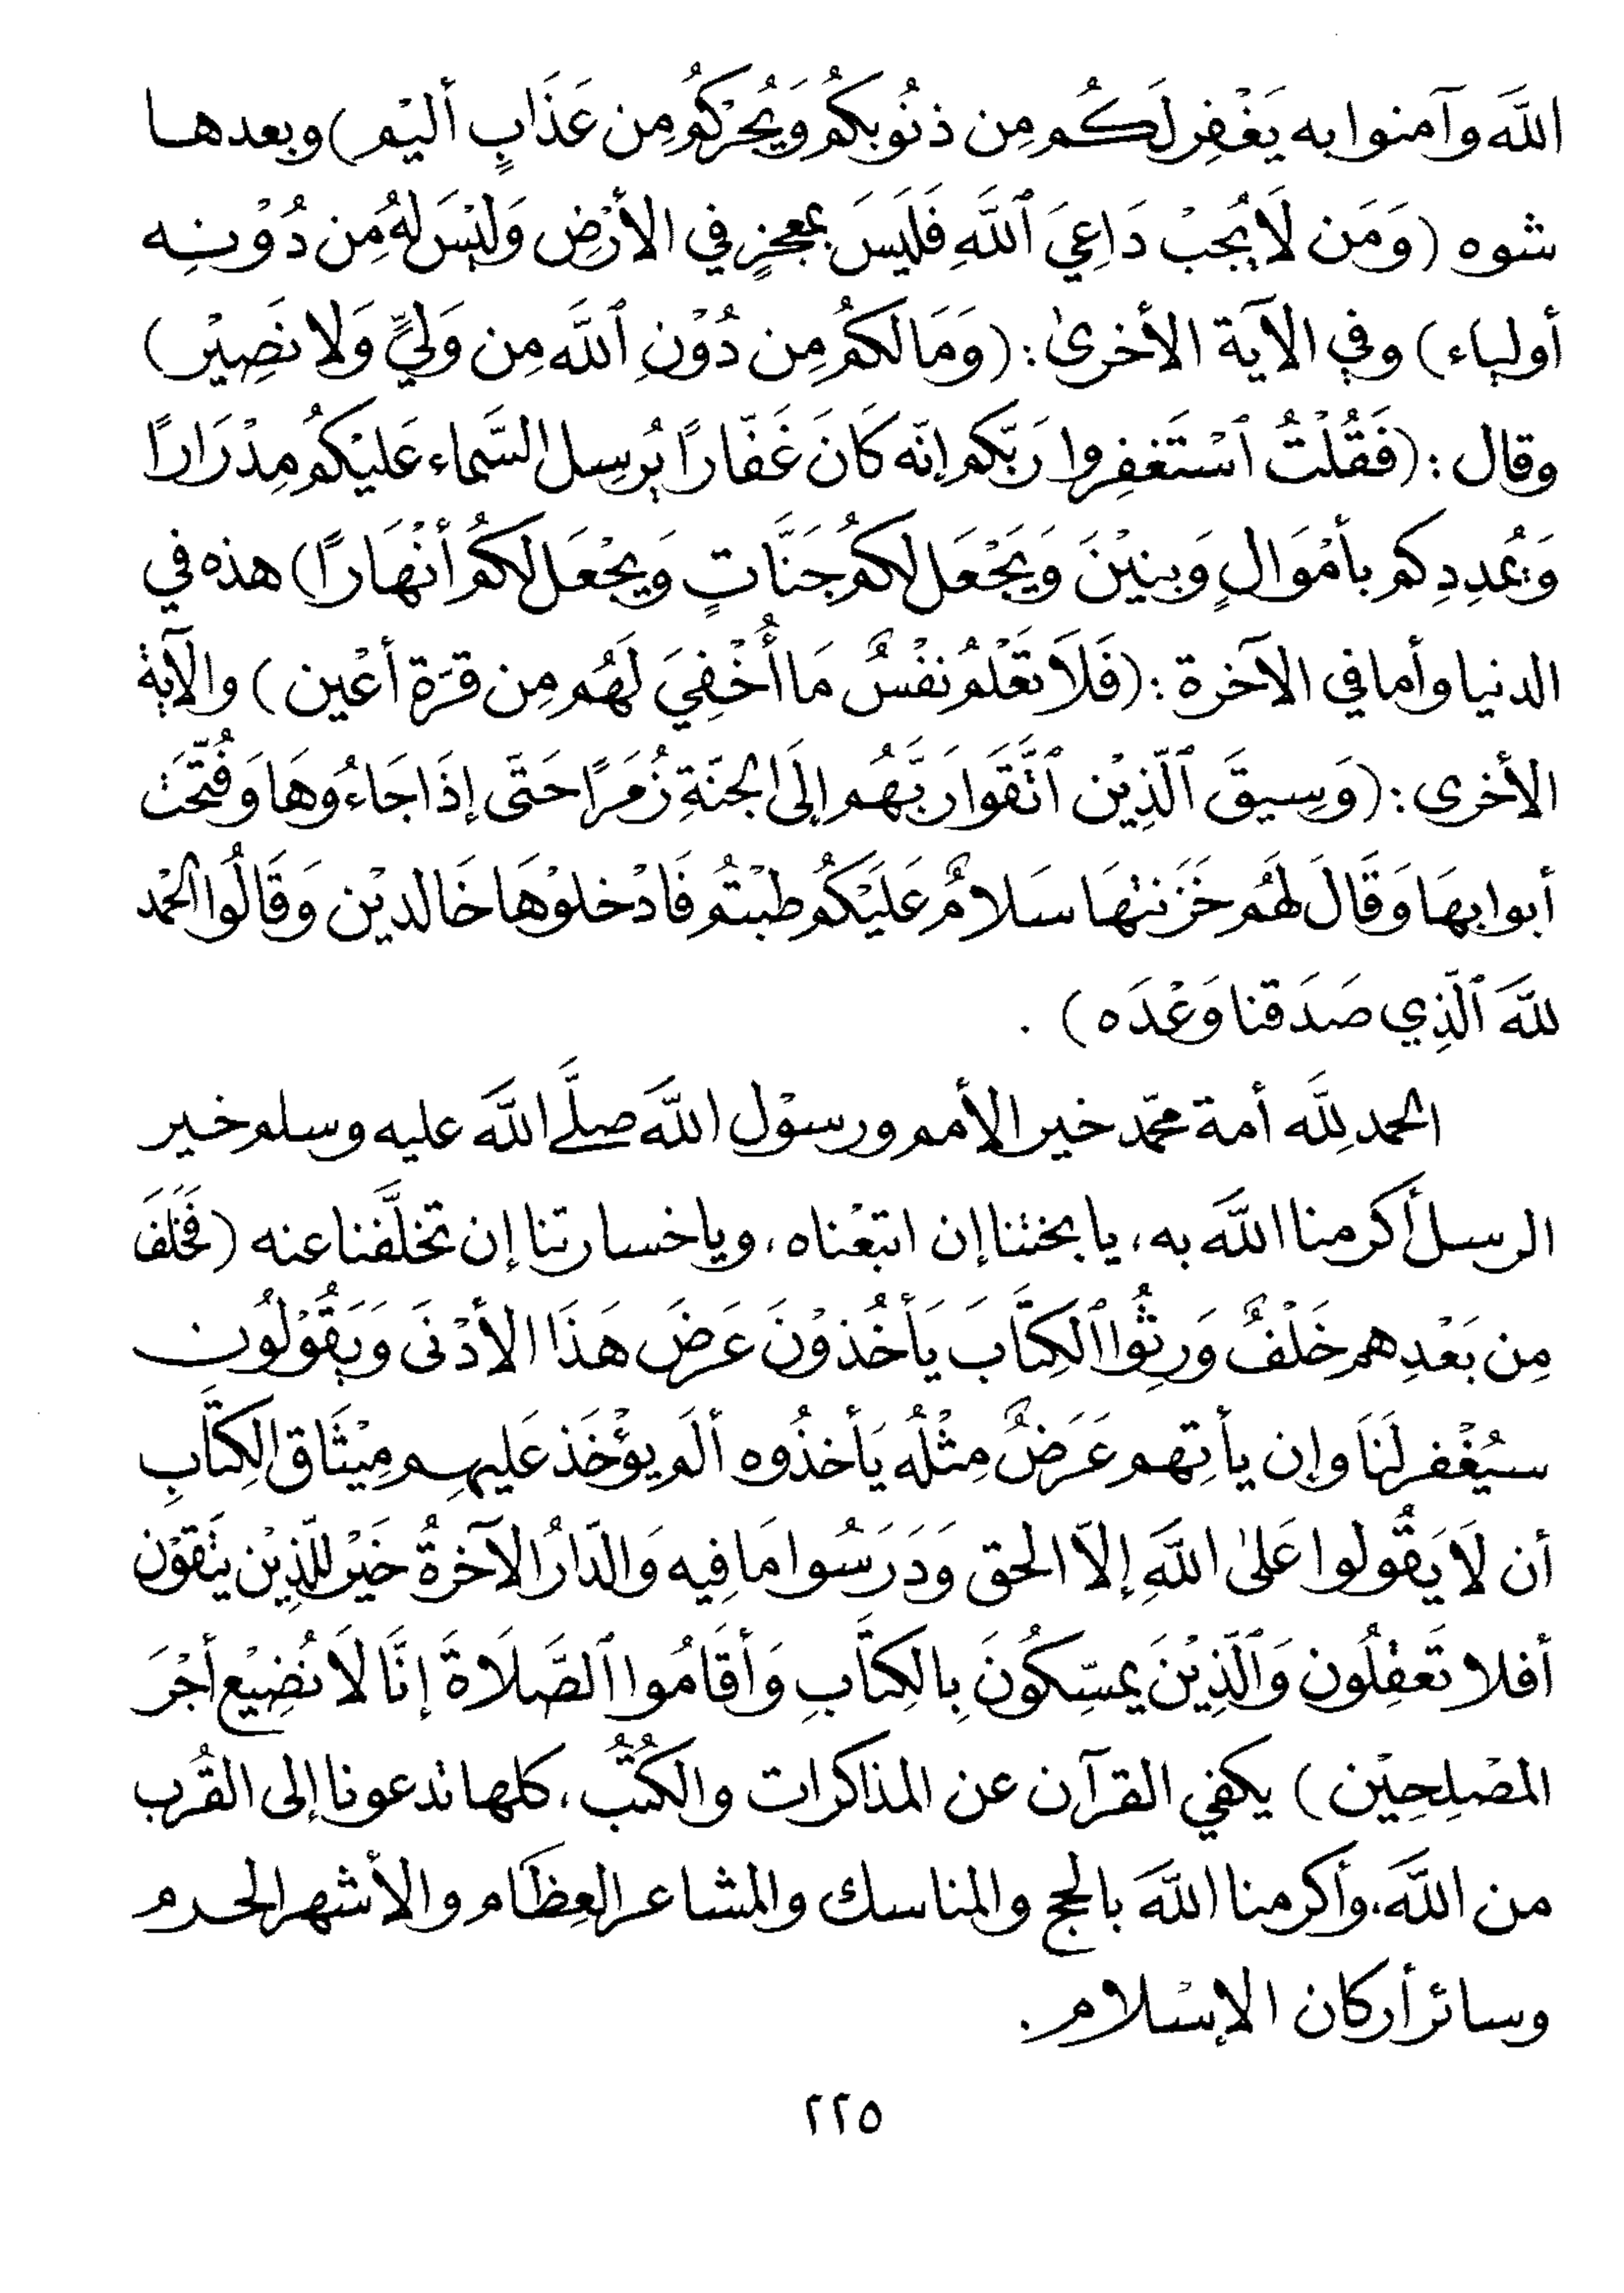 اللَّهَ وآمنوا به يَغْفِر لَكُم مِن ذنُوبكُم وَيُجِرْكُم مِن عَذَابٍ أليْم) وبعدها
شوه (وَمَن لَا يُجِبْ دَاعِيَ ٱللَّهِ فَلَيَسَ بمعجزٍ في الأرْضِ وَليْسَ لهُ مِن دُوْنِه
أولياء) وفي الآية الأخرىٰ: (وَمَا لكُم مِن دُوْنِ ٱللَّه مِن وَليٍّ وَلا نَصِيْر)
وقال: (فَقُلْتُ ٱسْتَغفِروا رَبّكم إنّه كَانَ غَفّارًا يُرسِل السَّماء عَليْكُم مِدْرَارًا
وَيُمدِدِكم بأمْوَالٍ وَبنِيْنَ وَيَجْعَل لكُم جَنَّاتٍ وَيجْعَل لكُم أنْهَارًا) هذه في
الدنيا وأما في الآخرة: (فَلاَ تَعْلمُ نفْسٌ مَا أُخْفِيَ لَهُم مِن قرَّة أعْين) والآية
الأخرى: (وَسِيقَ ٱلّذِيْن ٱتَّقَوا رَبَّهُم إلَى الجنَّةِ زُمَرًا حَتَى إذَا جَاءُوهَا وَفُتّحَتْ
أبوابهَا وَقَالَ لهُم خَزَنتهَا سَلامٌ عَلَيْكُم طبْتمُ فَادْخلوْهَا خَالديْن وَقَالُوا الحمْد
للَّهَ ٱلّذِي صَدَقنا وَعْدَه) .
الحمد لِلَّه أمة محمّد خير الأمم ورسوْل اللَّهَ صلَّى اللَّهَ عليه وسلم خير
الرسل أكرمنا اللَّهَ به، يا بختنا إن اتبعْناه، ويا خسارتنا إن تخلَّفنا عنه (فَخَلَفَ
مِن بَعْدِهم خَلْفٌ وَرِثُوا ٱلكِتَابَ يَأخُذوْنَ عَرَضَ هَذَا الأدْنَى وَيَقُوْلُون
سيُغْفر لَنَا وإن يأتِهم عَرَضٌ مِثْلُه يَأخذُوه ألَم يؤْخَذ عَليهِم مِيْثَاق الكِتَابِ
أن لَا يَقُولوا عَلىٰ اللَّهِ إلاّ الحق وَدَرَسُوا مَا فِيه وَالدّارُ الآخرةُ خَيْر للّذِيْن يتَقوْن
أفلا تَعقِلُون وَٱلّذِيْنَ يمسِّكُونَ بِالكِتَابِ وَأقَامُوا ٱلصَّلَاةَ إنَّا لَا نُضِيْع أجْرَ
المصْلِحِيْن) يكفي القرآن عن المذاكرات والكُتُب، كلها تدعونا إلى القُرب
من اللَّهَ، وأكرمنا اللَّهَ بالحج والمناسك والمشاعر العِظَام والأشهر الحرم
وسائر أركان الإسْلام.
٢٢٥